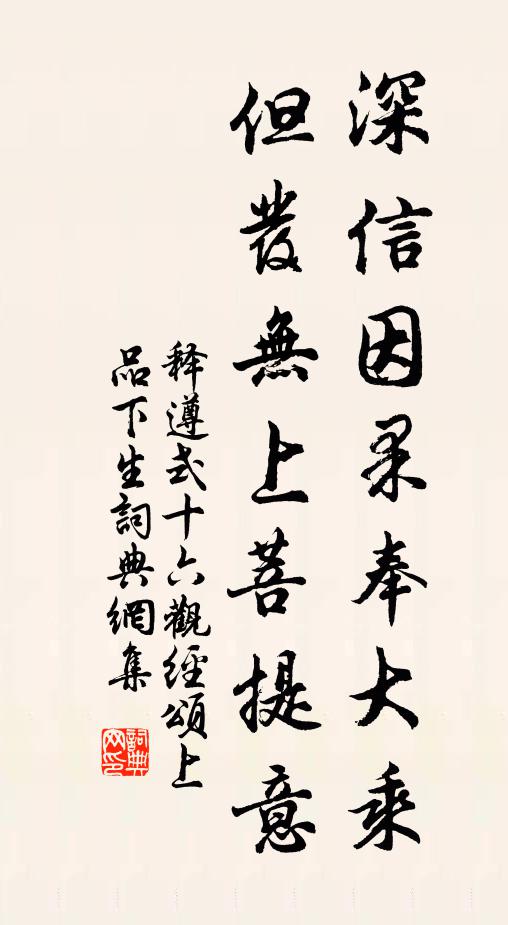 深信因果奉大乘
但發無上菩提意
释遵式十六觀經頌上
品下生詞典網集
詞典
网印